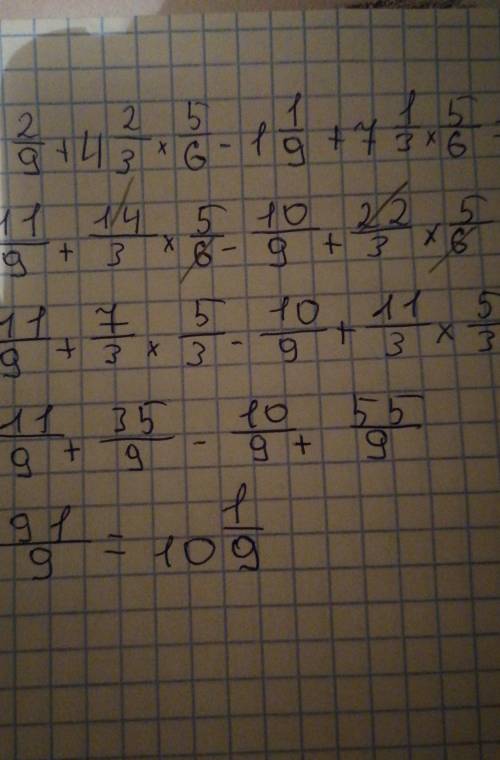 2/9 + 4 2/3 × 5/6 - 1 1/9 + 7 1/3 × 5/6 =
11/9 + 14/3 × 5/6 - 10/9 + 22/3 × 5/6
11/9 + 7/3 × 5/3 - 10/9 + 11/3 × 5/3
11/9 + 35/9 - 10/9 + 55/9
91/9 = 10 1/9